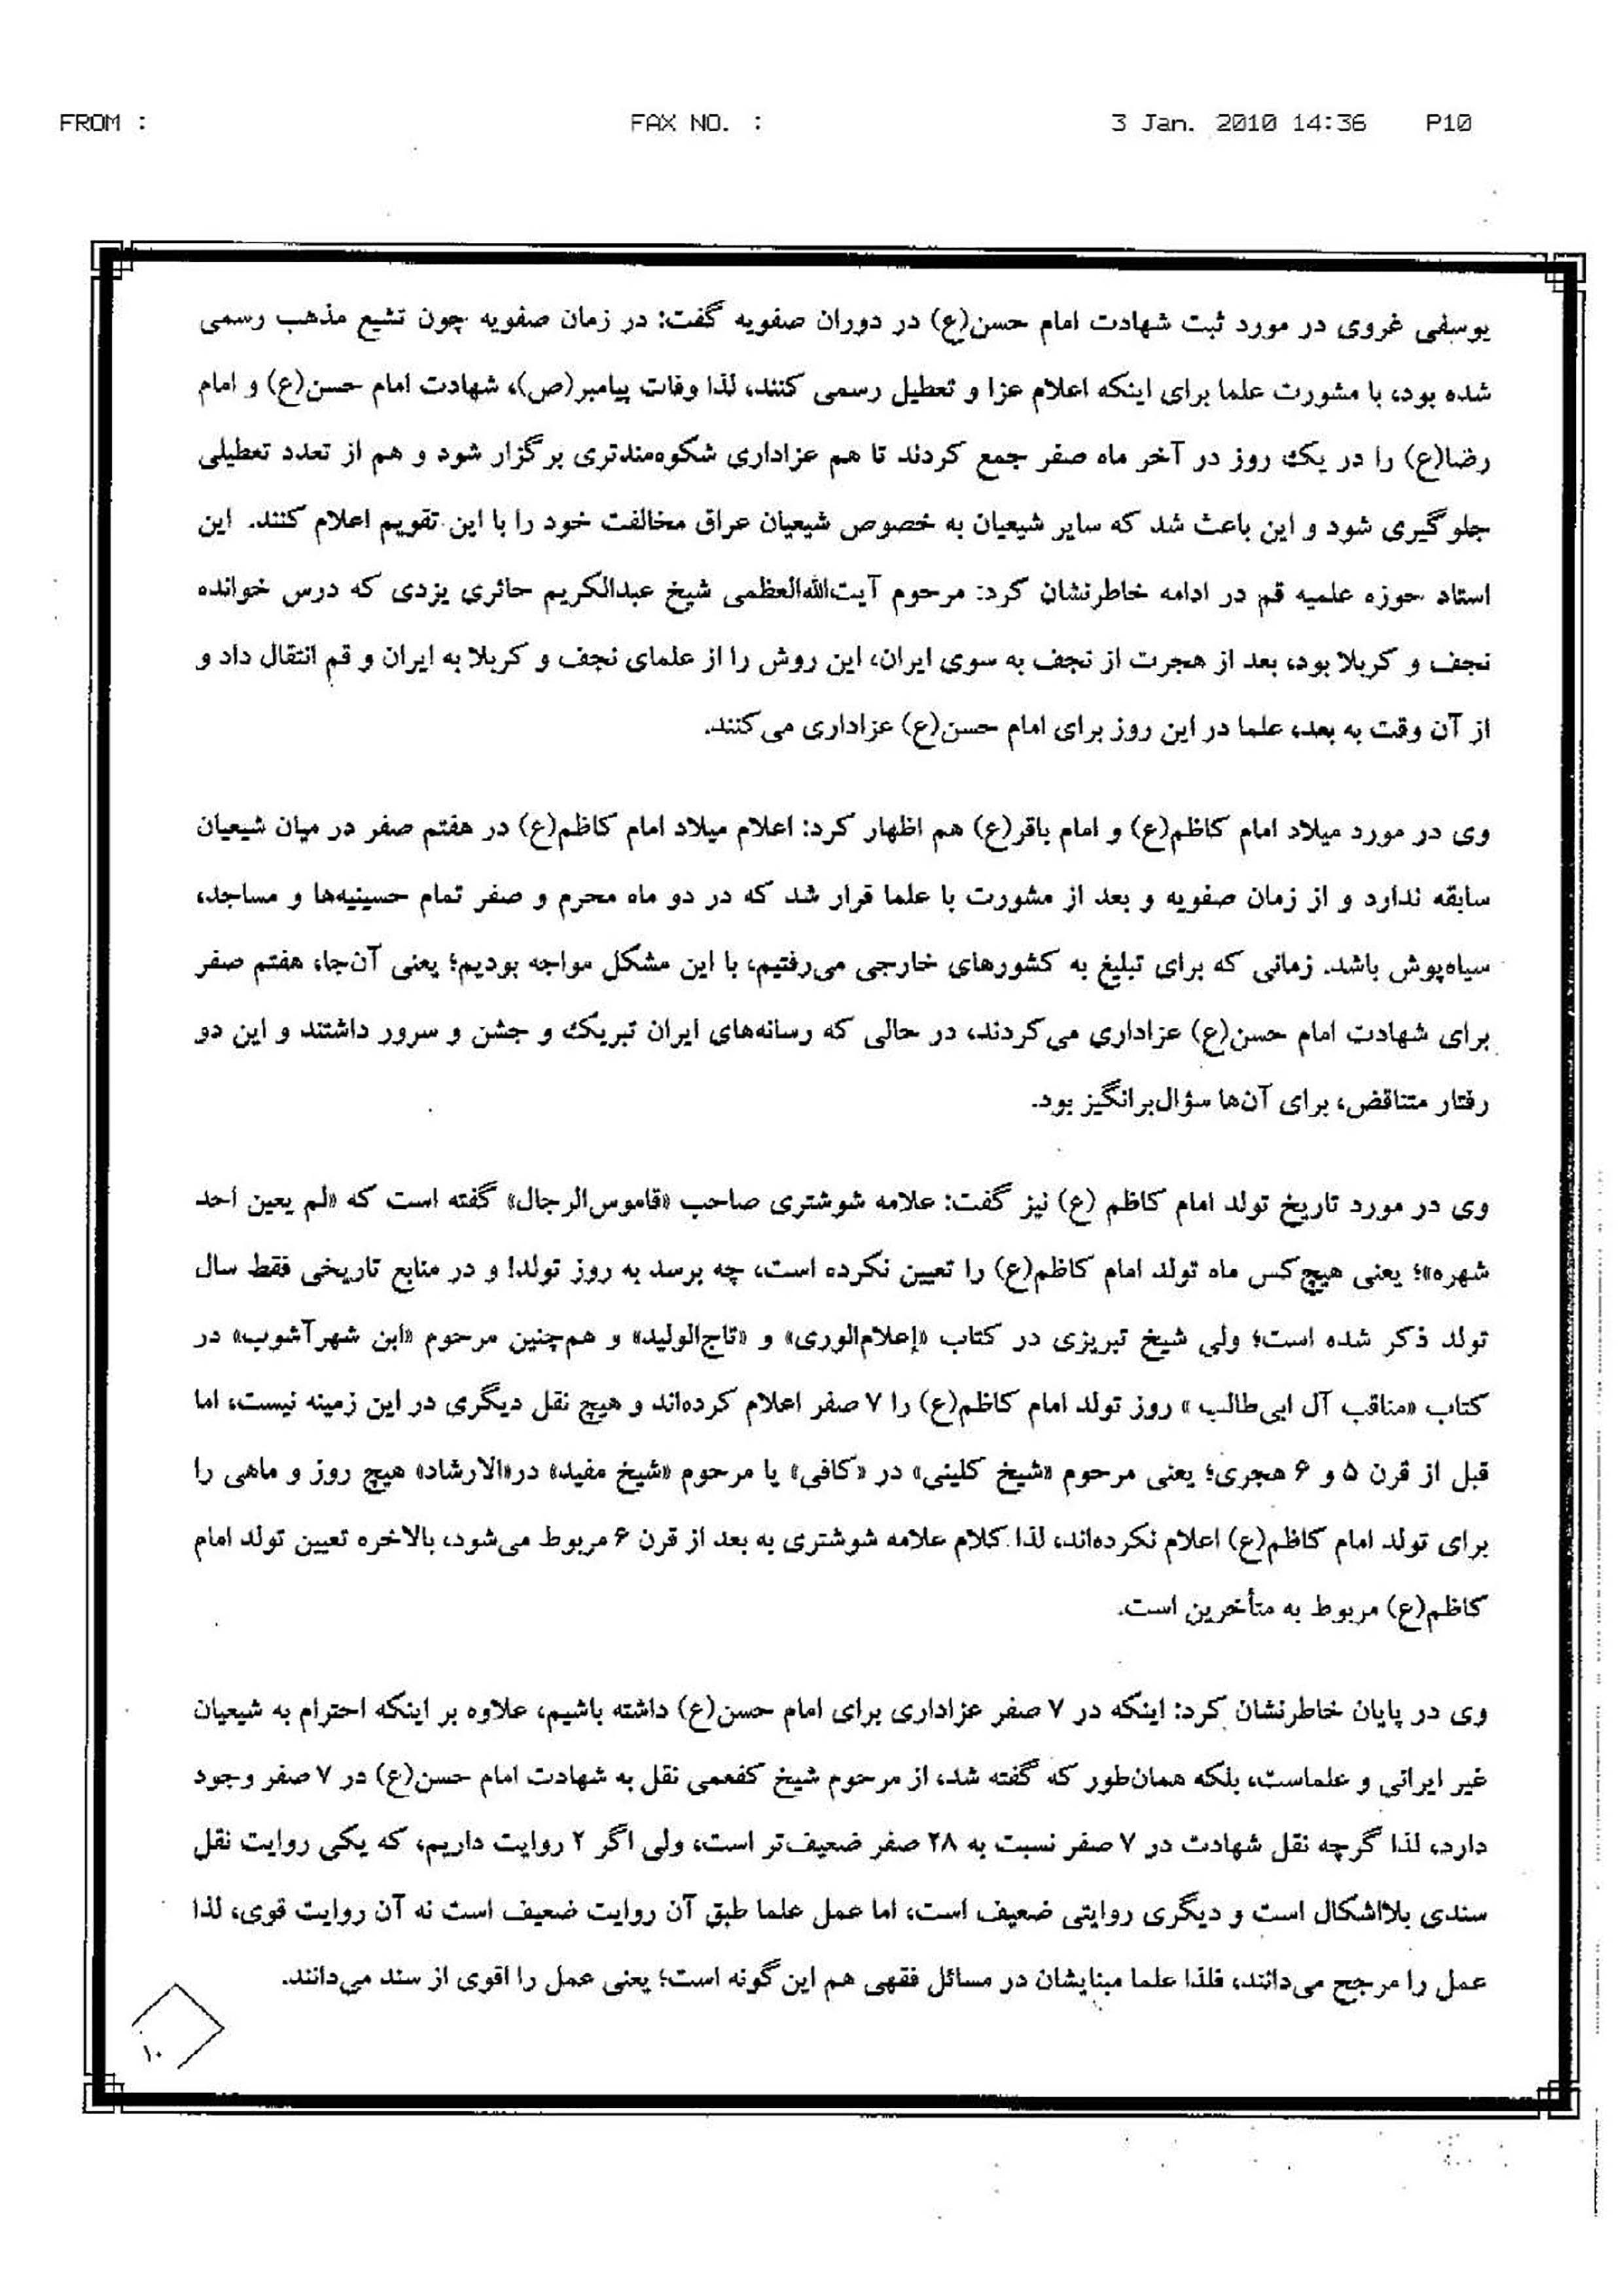 FROM : FAX NO. : 3 Jan. 2010 14:36 P10
یوسفی غروی در مورد ثبت شهادت امام حسن(ع) در دوران صفویه گفت: در زمان صفویه چون تشیع مذهب رسمی
شده بود، با مشورت علما برای اینکه اعلام عزا و تعطیل رسمی کنند، لذا وفات پیامبر(ص)، شهادت امام حسن(ع) و امام
رضا(ع) را در یک روز در آخر ماه صفر جمع کردند تا هم عزاداری شکوه‌مندتری برگزار شود و هم از تعدد تعطیلی
جلوگیری شود و این باعث شد که سایر شیعیان به خصوص شیعیان عراق مخالفت خود را با این تقویم اعلام کنند. این
استاد حوزه علمیه قم در ادامه خاطرنشان کرد: مرحوم آیت‌الله‌العظمی شیخ عبدالکریم حائری یزدی که درس خوانده
نجف و کربلا بود، بعد از هجرت از نجف به سوی ایران، این روش را از علمای نجف و کربلا به ایران و قم انتقال داد و
از آن وقت به بعد، علما در این روز برای امام حسن(ع) عزاداری می‌کنند.
وی در مورد میلاد امام کاظم(ع) و امام باقر(ع) هم اظهار کرد: اعلام میلاد امام کاظم(ع) در هفتم صفر در میان شیعیان
سابقه ندارد و از زمان صفویه و بعد از مشورت با علما قرار شد که در دو ماه محرم و صفر تمام حسینیه‌ها و مساجد،
سیاه‌پوش باشد. زمانی که برای تبلیغ به کشورهای خارجی می‌رفتیم، با این مشکل مواجه بودیم؛ یعنی آن‌جا، هفتم صفر
برای شهادت امام حسن(ع) عزاداری می‌کردند، در حالی که رسانه‌های ایران تبریک و جشن و سرور داشتند و این دو
رفتار متناقض، برای آن‌ها سؤال‌برانگیز بود.
وی در مورد تاریخ تولد امام کاظم (ع) نیز گفت: علامه شوشتری صاحب «قاموس‌الرجال» گفته است که «لم یعین احد
شهره»؛ یعنی هیچ‌کس ماه تولد امام کاظم(ع) را تعیین نکرده است، چه برسد به روز تولد! و در منابع تاریخی فقط سال
تولد ذکر شده است؛ ولی شیخ تبریزی در کتاب «إعلام‌الوری» و «تاج‌الولید» و هم‌چنین مرحوم «ابن شهرآشوب» در
کتاب «مناقب آل ابی‌طالب » روز تولد امام کاظم(ع) را ۷ صفر اعلام کرده‌اند و هیچ نقل دیگری در این زمینه نیست، اما
قبل از قرن ۵ و ۶ هجری؛ یعنی مرحوم «شیخ کلینی» در «کافی» یا مرحوم «شیخ مفید» در«الارشاد» هیچ روز و ماهی را
برای تولد امام کاظم(ع) اعلام نکرده‌اند، لذا کلام علامه شوشتری به بعد از قرن ۶ مربوط می‌شود، بالاخره تعیین تولد امام
کاظم(ع) مربوط به متأخرین است.
وی در پایان خاطرنشان کرد: اینکه در ۷ صفر عزاداری برای امام حسن(ع) داشته باشیم، علاوه بر اینکه احترام به شیعیان
غیر ایرانی و علماست، بلکه همان‌طور که گفته شد، از مرحوم شیخ کفعمی نقل به شهادت امام حسن(ع) در ۷ صفر وجود
دارد، لذا گرچه نقل شهادت در ۷ صفر نسبت به ۲۸ صفر ضعیف‌تر است، ولی اگر ۲ روایت داریم، که یکی روایت نقل
سندی بلااشکال است و دیگری روایتی ضعیف است، اما عمل علما طبق آن روایت ضعیف است نه آن روایت قوی، لذا
عمل را مرجح می‌دانند، فلذا علما مبنایشان در مسائل فقهی هم این گونه است؛ یعنی عمل را اقوی از سند می‌دانند.
۱۰